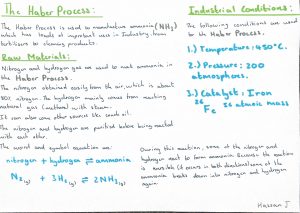 The Haber Process:
The Haber Process is used to manufacture ammonia (NH3)
which has loads of important uses in Industry, from
fertilisers to cleaning products.
Raw Materials:
Nitrogen and hydrogen gas are used to make ammonia in
the Haber Process.
The nitrogen obtained easily from the air, which is about
80% nitrogen. The hydrogen mainly comes from reacting
natural gas (methane) with steam.
It can also come other sources like crude oil.
The nitrogen and hydrogen are purified before being reacted
with each other.
The word and symbol equation are:
nitrogen + hydrogen ⇌ ammonia
N2(g) + 3H2(g) ⇌ 2NH3(g)
Industrial Conditions:
The following conditions are used
for the Haber Process.
1.) Temperature: 450°C.
2.) Pressure: 200
atmospheres.
3.) Catalyst: Iron
26
Fe
is atomic mass
During this reaction, some of the nitrogen and
hydrogen react to form ammonia. Because the reaction
is reversible (it occurs in both directions) some of the
ammonia breaks down into nitrogen and hydrogen
again.
Hassan J